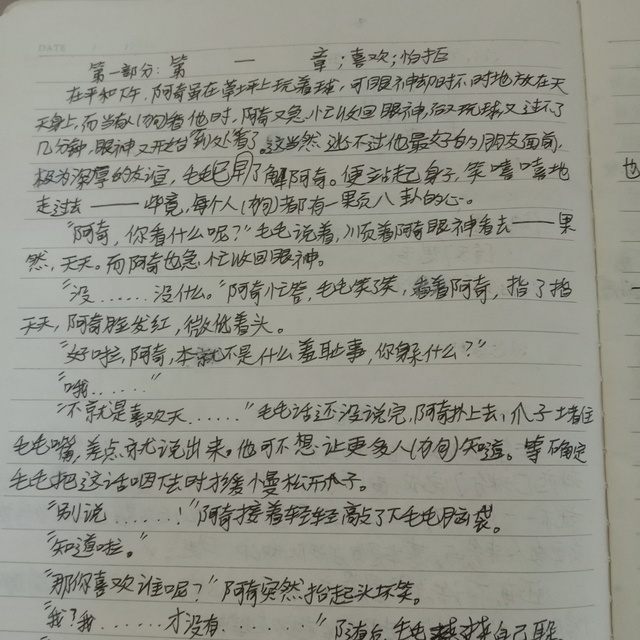 第一部分：第 一 章；喜欢；怕拒
在平和下午，阿奇虽在草坪上玩着球，可眼神却时不时地放在天
天身上，而当有人(狗)看他时，阿奇又急忙收回眼神，后又玩球，又过不了
几分钟，眼神又开始"到处"看了。这当然逃不过他最好的朋友面前，
极为深厚的友谊，毛毛已早了解阿奇。便站起身子，笑嘻嘻地
走过去——毕竟，每个人(狗)都有一颗八卦的心。
"阿奇，你看什么呢？"毛毛说着，顺着阿奇眼神看去——果
然，天天。而阿奇也急忙收回眼神。
"没……没什么。"阿奇忙答，毛毛笑了笑，看着阿奇，指了指
天天，阿奇脸发红，微低着头。
"好啦，阿奇，本就不是什么羞耻事，你躲什么？"
"哦……"
"不就是喜欢天……"毛毛话还没说完，阿奇扑上去，爪子堵住
毛毛嘴，差点就说出来。他可不想让更多人(狗)知道。等确定
毛毛把这话咽下去时才缓慢松开爪子。
"别说……！"阿奇接着轻轻敲了下毛毛脑袋。
"知道啦。"
"那你喜欢谁呢？"阿奇突然抬起头坏笑。
"我？我……才没有……"随后，毛毛 自己
也